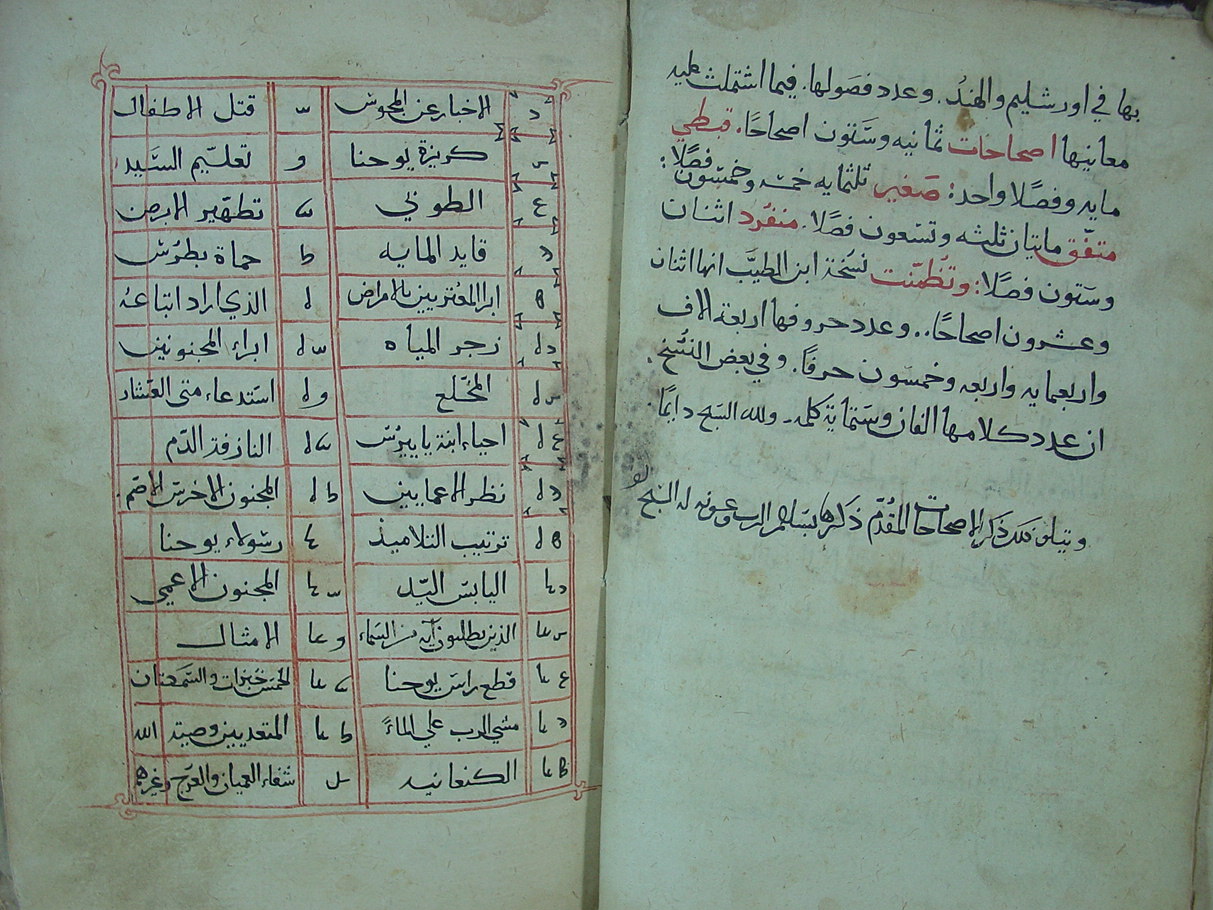 بها في اورشليم والهند. وعدد فصولها. فيما اشتملت عليه
معانيها اصحاحات ثمانيه وستون اصحاحًا. قبطي
مايه وفصلا واحد: صغير ثلثمايه خمسه وخمسون فصلًا:
متفق مايتان ثلثه وتسعون فصلًا. منفرد اثنان
وستون فصلًا: وتضمنت نسخة ابن الطيب انها اثنان
وعشرون اصحاحًا.. وعدد حروفها اربعة الاف
واربعمايه واربعه وخمسون حرفًا. وفي بعض النسخ.
ان عدد كلامها الفان وستماية كلمه. ولله السبح دايمًا
ويتلو ذلك ذكر الاصحاحات المقدم ذكرها بسلام الرب وعونه له السبح
الاخبار عن المجوس قتل الاطفال
كريزة يوحنا و تعليم السيد
ع الطوبى تطهير الابرص
قايد المايه ط حماة بطرس
ابرا المعتريين بالامراض الذي اراد اتباعه
زجر المياه ابراء المجنونين
المخلع استدعاء متى العشار
احياء ابنة يايرس النازفة الدم
نظر الاعمايين المجنون الاخرس الاصم
ترتيب التلاميذ رسولاء يوحنا
اليابس اليد المجنون الاعمي
الذين يطلبون آيه من السماء الامثال
قطع راس يوحنا الخمس خبزات والسمكتان
مشي الرب علي الماءً المتعديين وصية الله
الكنعانيه شفاء العميان والعرج وغيرهم